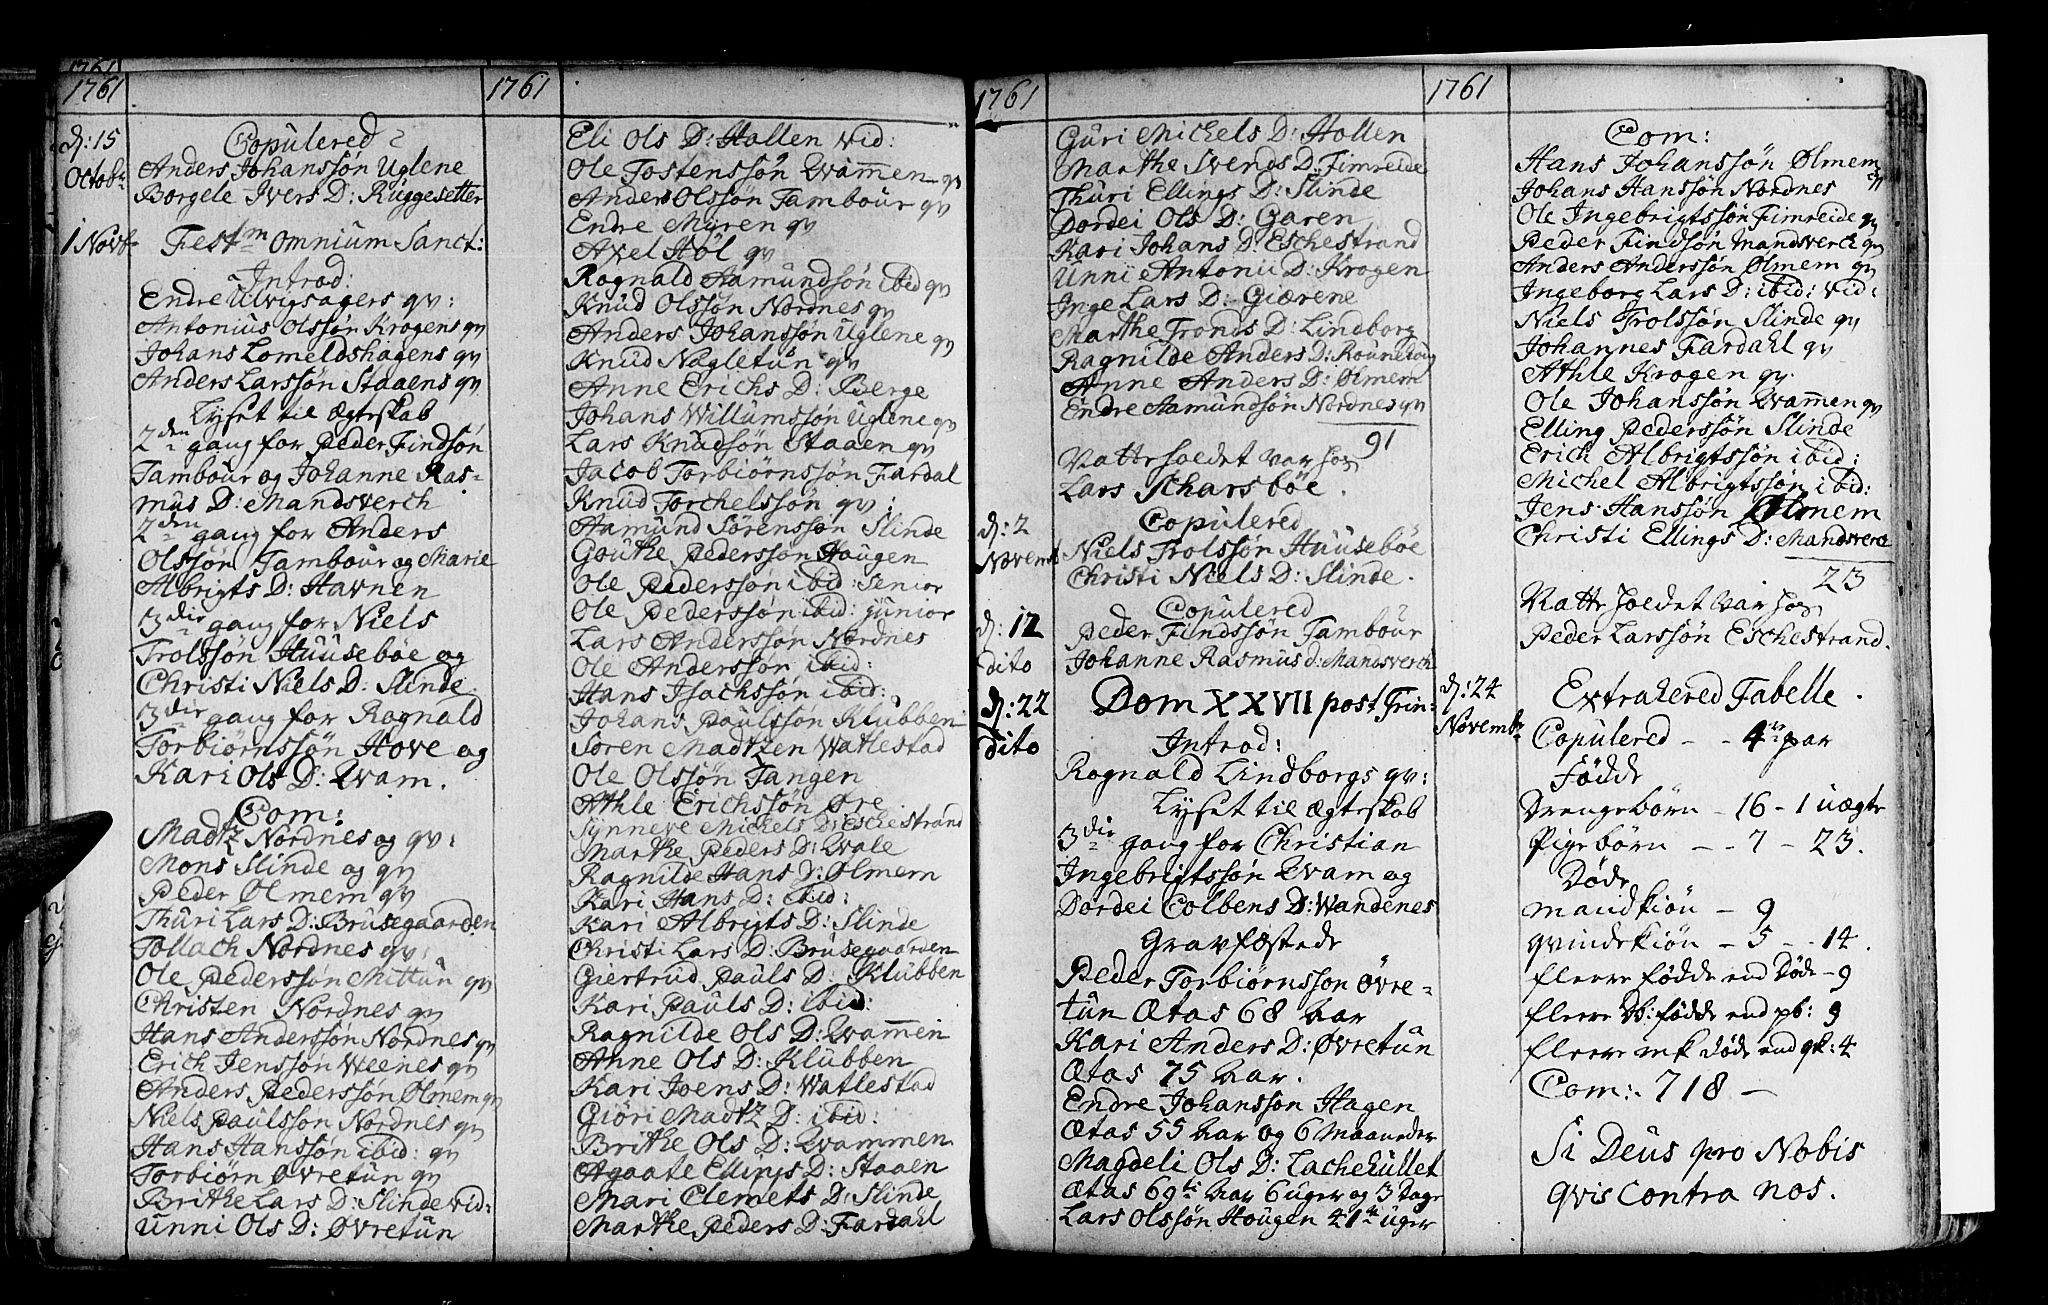 1761
1761
d: 15
Octobr
Copulered
Anders Johanssøn Uglene
Borgele Ivers D: Ruggesetter
1 Novb
Festm omnium Sanct:
Introd:
Endre Ulvigsagers qv:
Antonius Olssøn Krogens qv
Johans Lomeldshagens qv
Anders Larssøn Staaens qv
Lyset til Ægteskab
2den gang for Peder Findsøn
Tambour og Johanne Ras-
mus D: Mandsverch
2den gang for Anders
Olssøn Tambour og Marie
Albrigts D: Havnen
3die gang for Niels
Trolssøn Huusebøe og
Christi Niels D: Slinde
3die gang for Ragnald
Torbiørnssøn Hove og
Kari Ols D: Qvam.
Com:
Madtz Nordnes og qv:
Mons Slinde og qv
Peder Ølmem qv
Thuri Lars D: Brusegaarden
Tollach Nordnes qv:
Ole Pederssøn Mittun qv
Christen Nordnes qv
Hans Anderssøn Nordnes qv
Erich Jenssøn Weenes qv
Anders Pederssøn Ølmem qv
Niels Paulssøn Nordnes qv
Hans Hanssøn ibid: qv
Torbiørn Øvretun qv
Brithe Lars D: Slinde vid:
Unni Ols D: Øvretun
1761
Eli Ols D: Hollen vid:
Ole Jostenssøn Qvam̄en qv
Anders Olssøn Tambour qv
Endre Myren qv
Axel Høl qv
Ragnald Aamundsøn ibid qv
Knud Olssøn Nordnes qv
Anders Johanssøn Uglene qv
Knud Nagletun qv
Anne Erichs D: Berge
Johans Willumssøn Uglene qv
Lars Knudsøn Staaen qv
Jacob Torbiørnssøn Fardal
Knud Torchelssøn qv:
Aamund Sørenssøn Slinde
Gouthe Pederssøn Haugen
Ole Pederssøn ibid: Senior
Ole Pederssøn ibid: Junior
Lars Anderssøn Nordnes
Ole Anderssøn ibid:
Hans Jsachssøn ibid:
Johans Paulssøn Klubben
Søren Madtzen Watlestad
Ole Olssøn Tangen
Athle Erichssøn Øre
Synneve Michels D: Eschestrand
Marthe Peders D: Qvale
Ragnilde Hans D: Ølmem
Kari Hans D: ibid:
Kari Albrigts D: Slinde
Christi Lars D: Brusegaarden
Giertrud Pauls D: Klubben
Kari Pauls D: ibid:
Ragnilde Ols D: Qvam̄en
Anne Ols D: Klubben
Kari Joens D: Watlestad
Giøri Madtz D: ibid:
Brithe Ols D: Qvammen
Agaate Ellings D: Staaen
Mari Clemets D: Slinde
Marthe Peders D: Fardahl
1761
Guri Michels D: Hollen
Marthe Svends D: Fimreide
Thuri Ellings D: Slinde
Dordei Ols D: Garen
Kari Johans D: Eschestrand
Unni Antonii D: Krogen
Inge Lars D: Giærene
Marthe Tronds D: Lindborg
Ragnilde Anders D: Rounetong
Anne Anders D: Ølmem
Endre Aamundsøn Nordnes qv
91
Natteholdet var hos
Lars Scharsbøe.
d: 2
Novemb
Copulered
Niels Trolssøn Huusebøe
Christi Niels D: Slinde.
d: 12
dito
Copulered
Peder Findssøn Tambour
Johanne Rasmus d: Mandsverch
d: 22
dito
Dom XXVII post Trin:
Introd:
Ragnald Lindborgs qv:
Lyset til Ægteskab
3die gang for Christian
Ingebrigtssøn Qvam og
Dordei Colbens D: Wandenes
Gravfæstede
Peder Torbiørnssøn Øvre-
tun Ætas 68 Aar
Kari Anders D: Øvretun
Ætas 75 Aar.
Endre Johanssøn Hagen
Ætas 55 Aar og 6 Maaneder
Magdeli Ols D: Lachehullet
Ætas 69ti Aar 6 uger og 3 Dage
Lars Olssøn Hougen 41 uger
1761
Com:
Hans Johanssøn Ølmem qv
Johans Hanssøn Nordnes
Ole Ingebrigtssøn Fimreide qv
Peder Findsøn Mandsverch qv
Anders Anderssøn Ølmem qv
Ingeborg Lars D: ibid: vid:
Niels Trolssøn Slinde qv
Johannes Fardahl qv
Athle Krogen qv.
Ole Johanssøn Qvam̄en qv
Elling Pederssøn Slinde
Erich Albrigtssøn ibid:
Michel Albrigtssøn ibid:
Jens Hanssøn Ølmem
Christi Ellings D: Mandsverc
23
Natteholdet var hos
Peder Larssøn Eschestrand.
d: 24
Novembr
Extrahered Tabelle.
Copulered - - 4re par
Fødde
Drengebørn - 16 - 1 uægte
Pigebørn - - 7 - 23.
Døde
Mandkiøn - 9
Qvindekiøn - 5 - - 14.
fleere fødde end Døde - 9
fleere D: fødde end pb: 9
fleere mk døde end qk: 4
Com: 718 -
Si Deus pro Nobis
qvis contra nos.